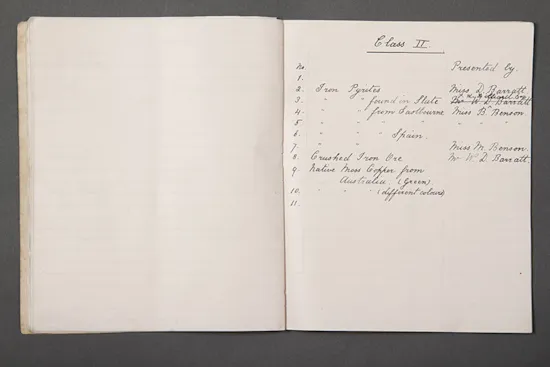 Class II.
No Presented by.
1.
2. Iron Pyrites Miss D. Barratt
3. " " found in Slate W. D. Barratt
4. " " from Eastbourne Miss B. Benson
5. " " " " " " "
6. " " " Spain. " " "
7. " " " Miss M. Benson.
8. Crushed Iron Ore Mr W. D. Barratt.
9. Native Moss Copper from
Australia. (Green)
10. " " " (different colours)
11.